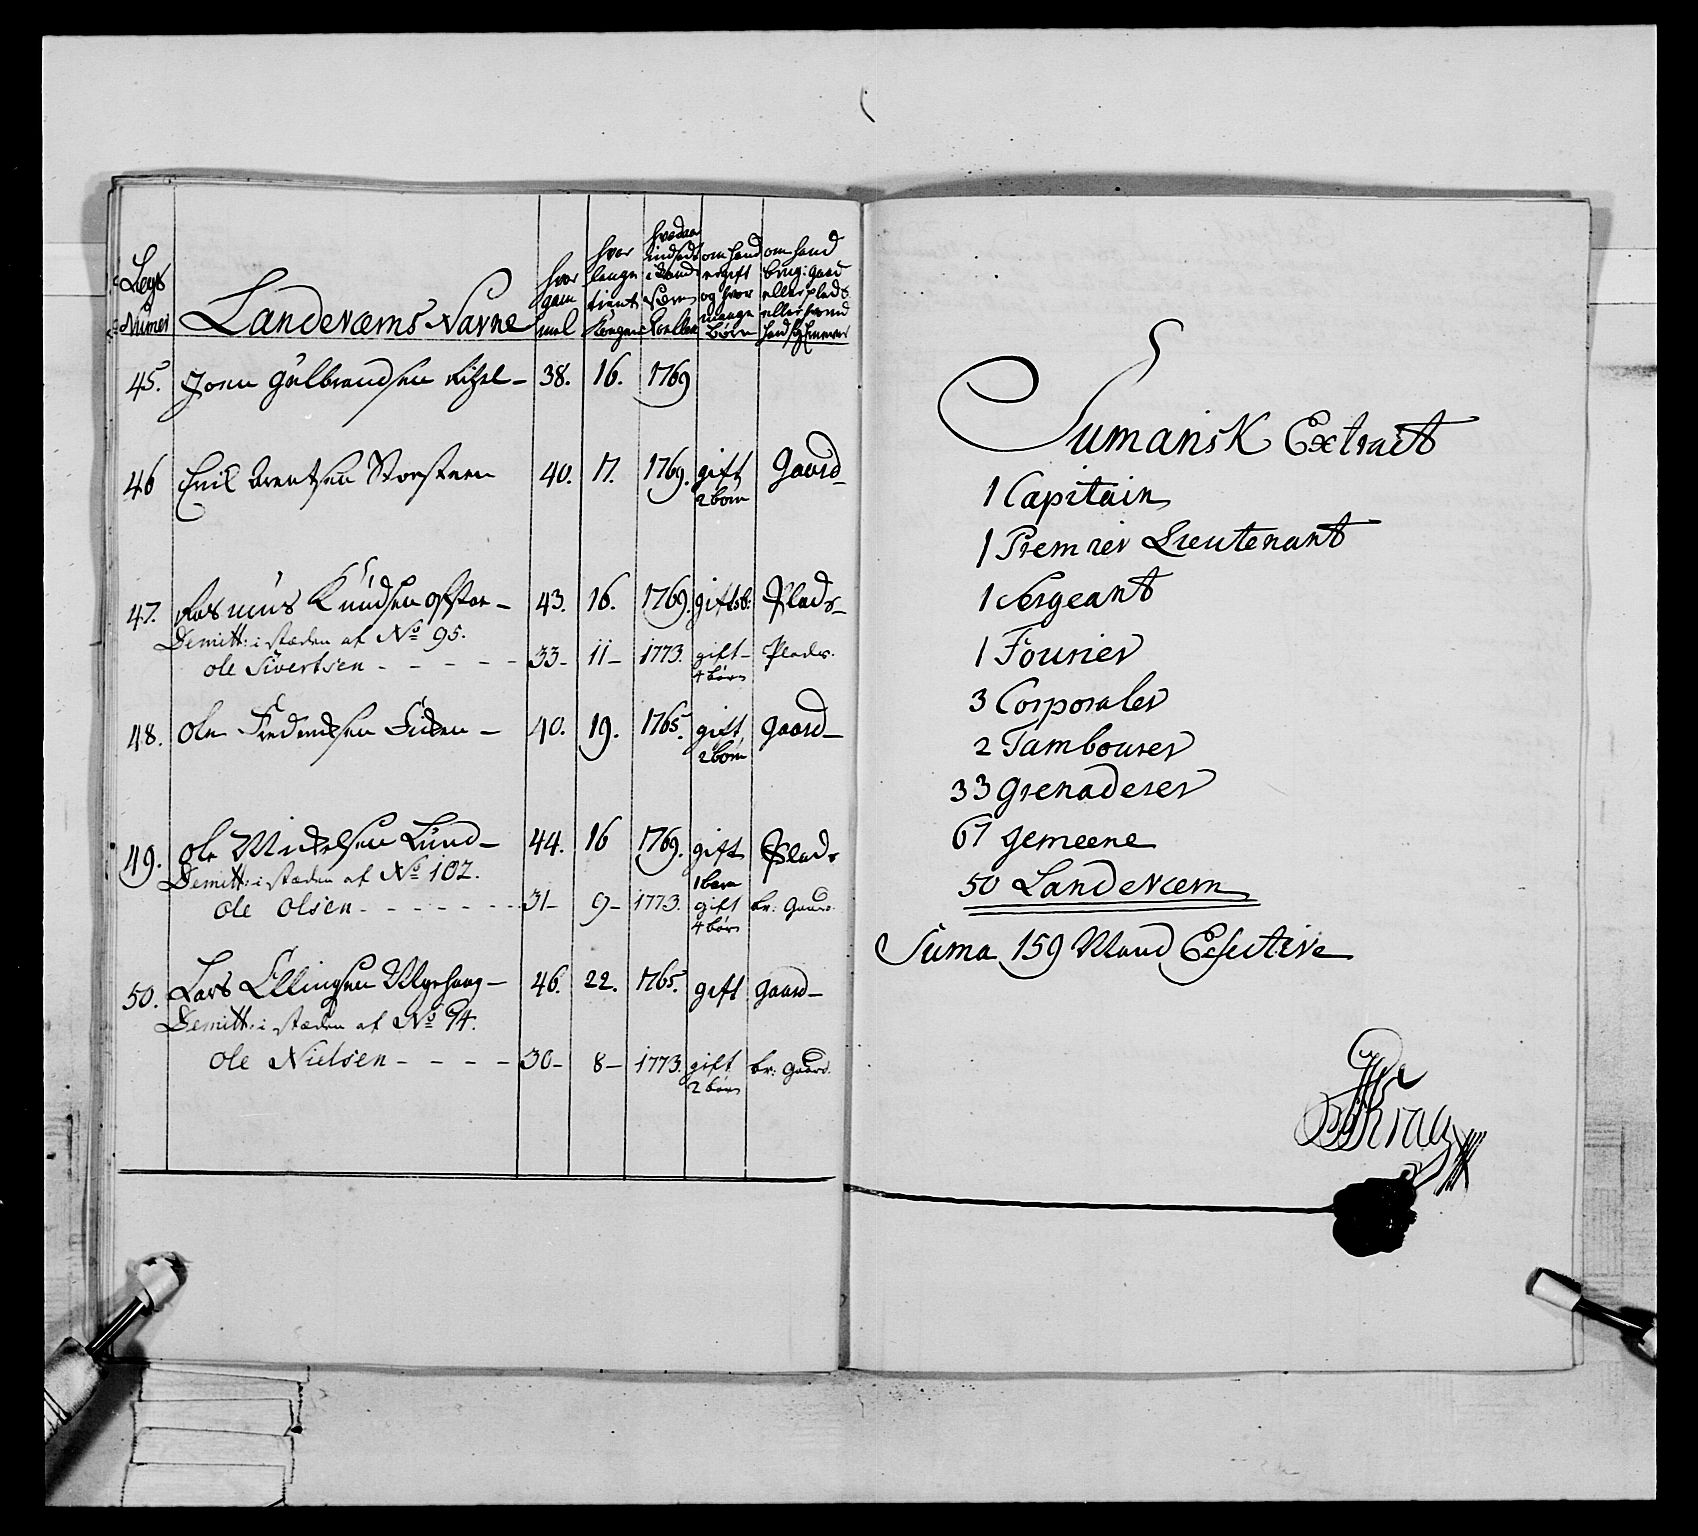 Legs
Numer
Landeværns Navne
hvor
gam
mel
hvor
lenge
tient
Kongen
hvedaar
indsadt
i Land
værn
Rollen
om hand
er gift
og hvor
mange
Børn
om hand
brug: gaard
eller plads
eller
45. Joen Gulbrandsen 38. 16. 1769
46 Eril Arentsen 40. 17. 1769. gift Gaard
2 børn
47. Rasmus Knudsen 43. 16. 1769. gift Plads
Demitt: i stæden af No 95.
Ole Sivertsen 33 11 1773. gift Plads.
4 børn
48. Ole 40. 19. 1765. gift gaard
2 børn
49. Ole Mickelsen Lund 44. 16 1769. gift Plads
1 barn
Demitt: i stæden af No 102.
Ole Olsen 31 9 1773. gift br: Gaard.
4 børn
50. Lars Ellingsen 46. 22. 1765. gift gaard
Demitt: i stæden af No 94.
Ole Nielsen 30 8 1773. gift br: Gaard.
2 børn
Sumarisk Extract
1 Capitain
1 Premier Lieutenant
1 Sergeant
1 Fourier
3 Corporaler
2 Tambourer
33 Grenaderer
67 Gemeene
50 Landeværn
Suma 159 Mand Effective
Krag